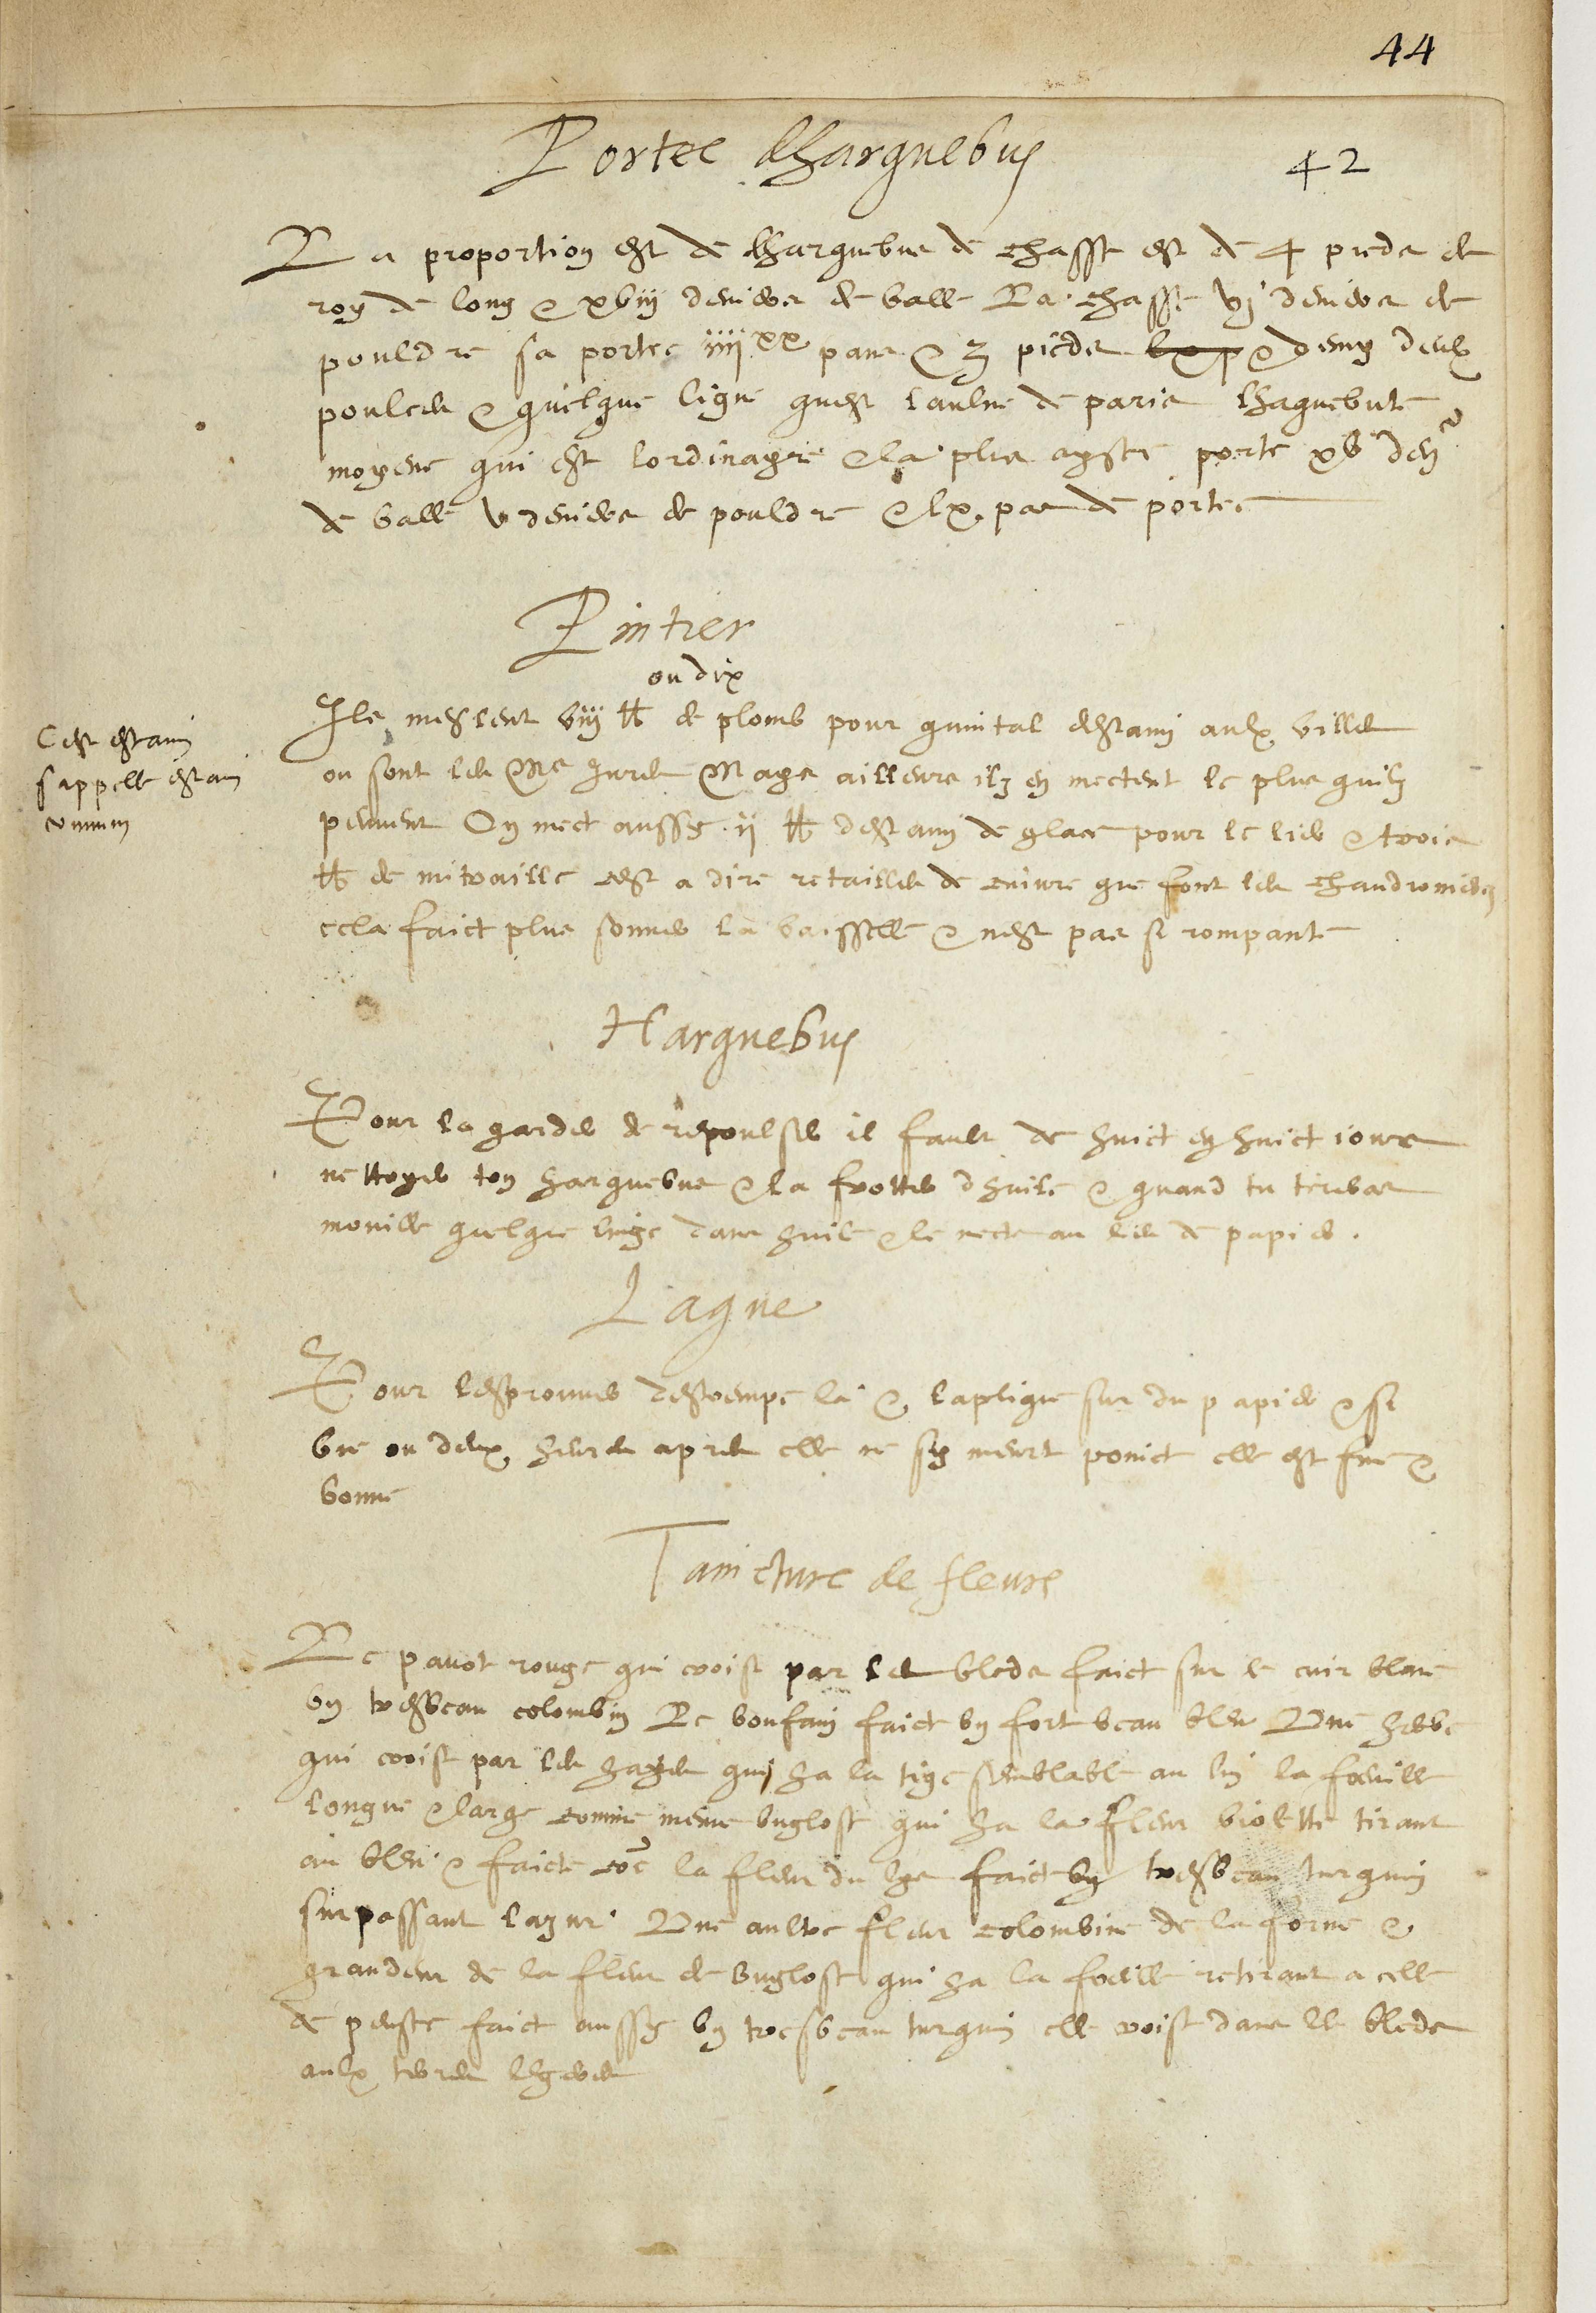 44
Portee dharquebus
42
La proportion est de lharquebus de chasse est de 4 pieds de
roy de long & xviij deniers de balle La chasse vj deniers de
pouldre sa portee iiij xx pans & 3 pieds & demy deulx
poulces & quelque ligne quest laulne de paris lhaquebute
moyene qui est lordinayre & la plus aysee porte xv den
de balle v deniers de pouldre & lx pas de portee
Pintier
ou dix
Ils meslent viij lb de plomb pour quintal destaim aulx villes
ou sont les Mes jures Mays ailleurs ilz en mectent le plus quilz
peuvent On mect aussy ij lb destaim de glace pour le lier & trois
lb de mitraille cest a dire retailles de cuivre que font les chaudroniers
cela faict plus sonner la vaisselle & nest pas si rompante
Cest estaim
sappelle estaim
commun
Harquebus
Pour la garder de repoulser il fault de huict en huict jours
nettoyer ton harquebus & la frotter dhuile & quand tu tireras
mouille quelque linge dans huile & le mects au lieu de papier .
Laque
Pour lesprouver destrempe la & laplique sur du papier & si
une ou deux heures apres elle ne sy meurt poinct elle est fine &
bonne
Taincture de fleurs
Le pavot rouge qui croist par les bleds faict sur le cuir blanc
un tresbeau colombin Le boufain faict un fort beau bleu Une herbe
qui croist par les hayes qui ha la tige semblable au lin la foeuille
longue & large comme menue buglosse qui ha la fleur violette tirant
au bleu & faicte coe la fleur du lys faict un tresbeau turquin
surpassant lazur Une aultre fleur colombine de la forme &
grandeur de la fleur de buglosse qui ha la foeille retirant a celle
de pensee faict aussy un tresbeau turquin elle croist dans les bleds
aulx terres legeres